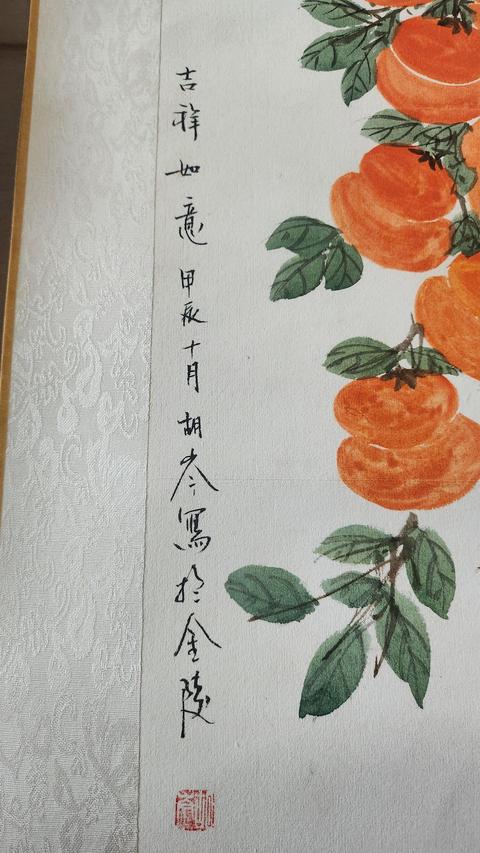 吉祥如意 甲辰十月 胡岑寫於金陵